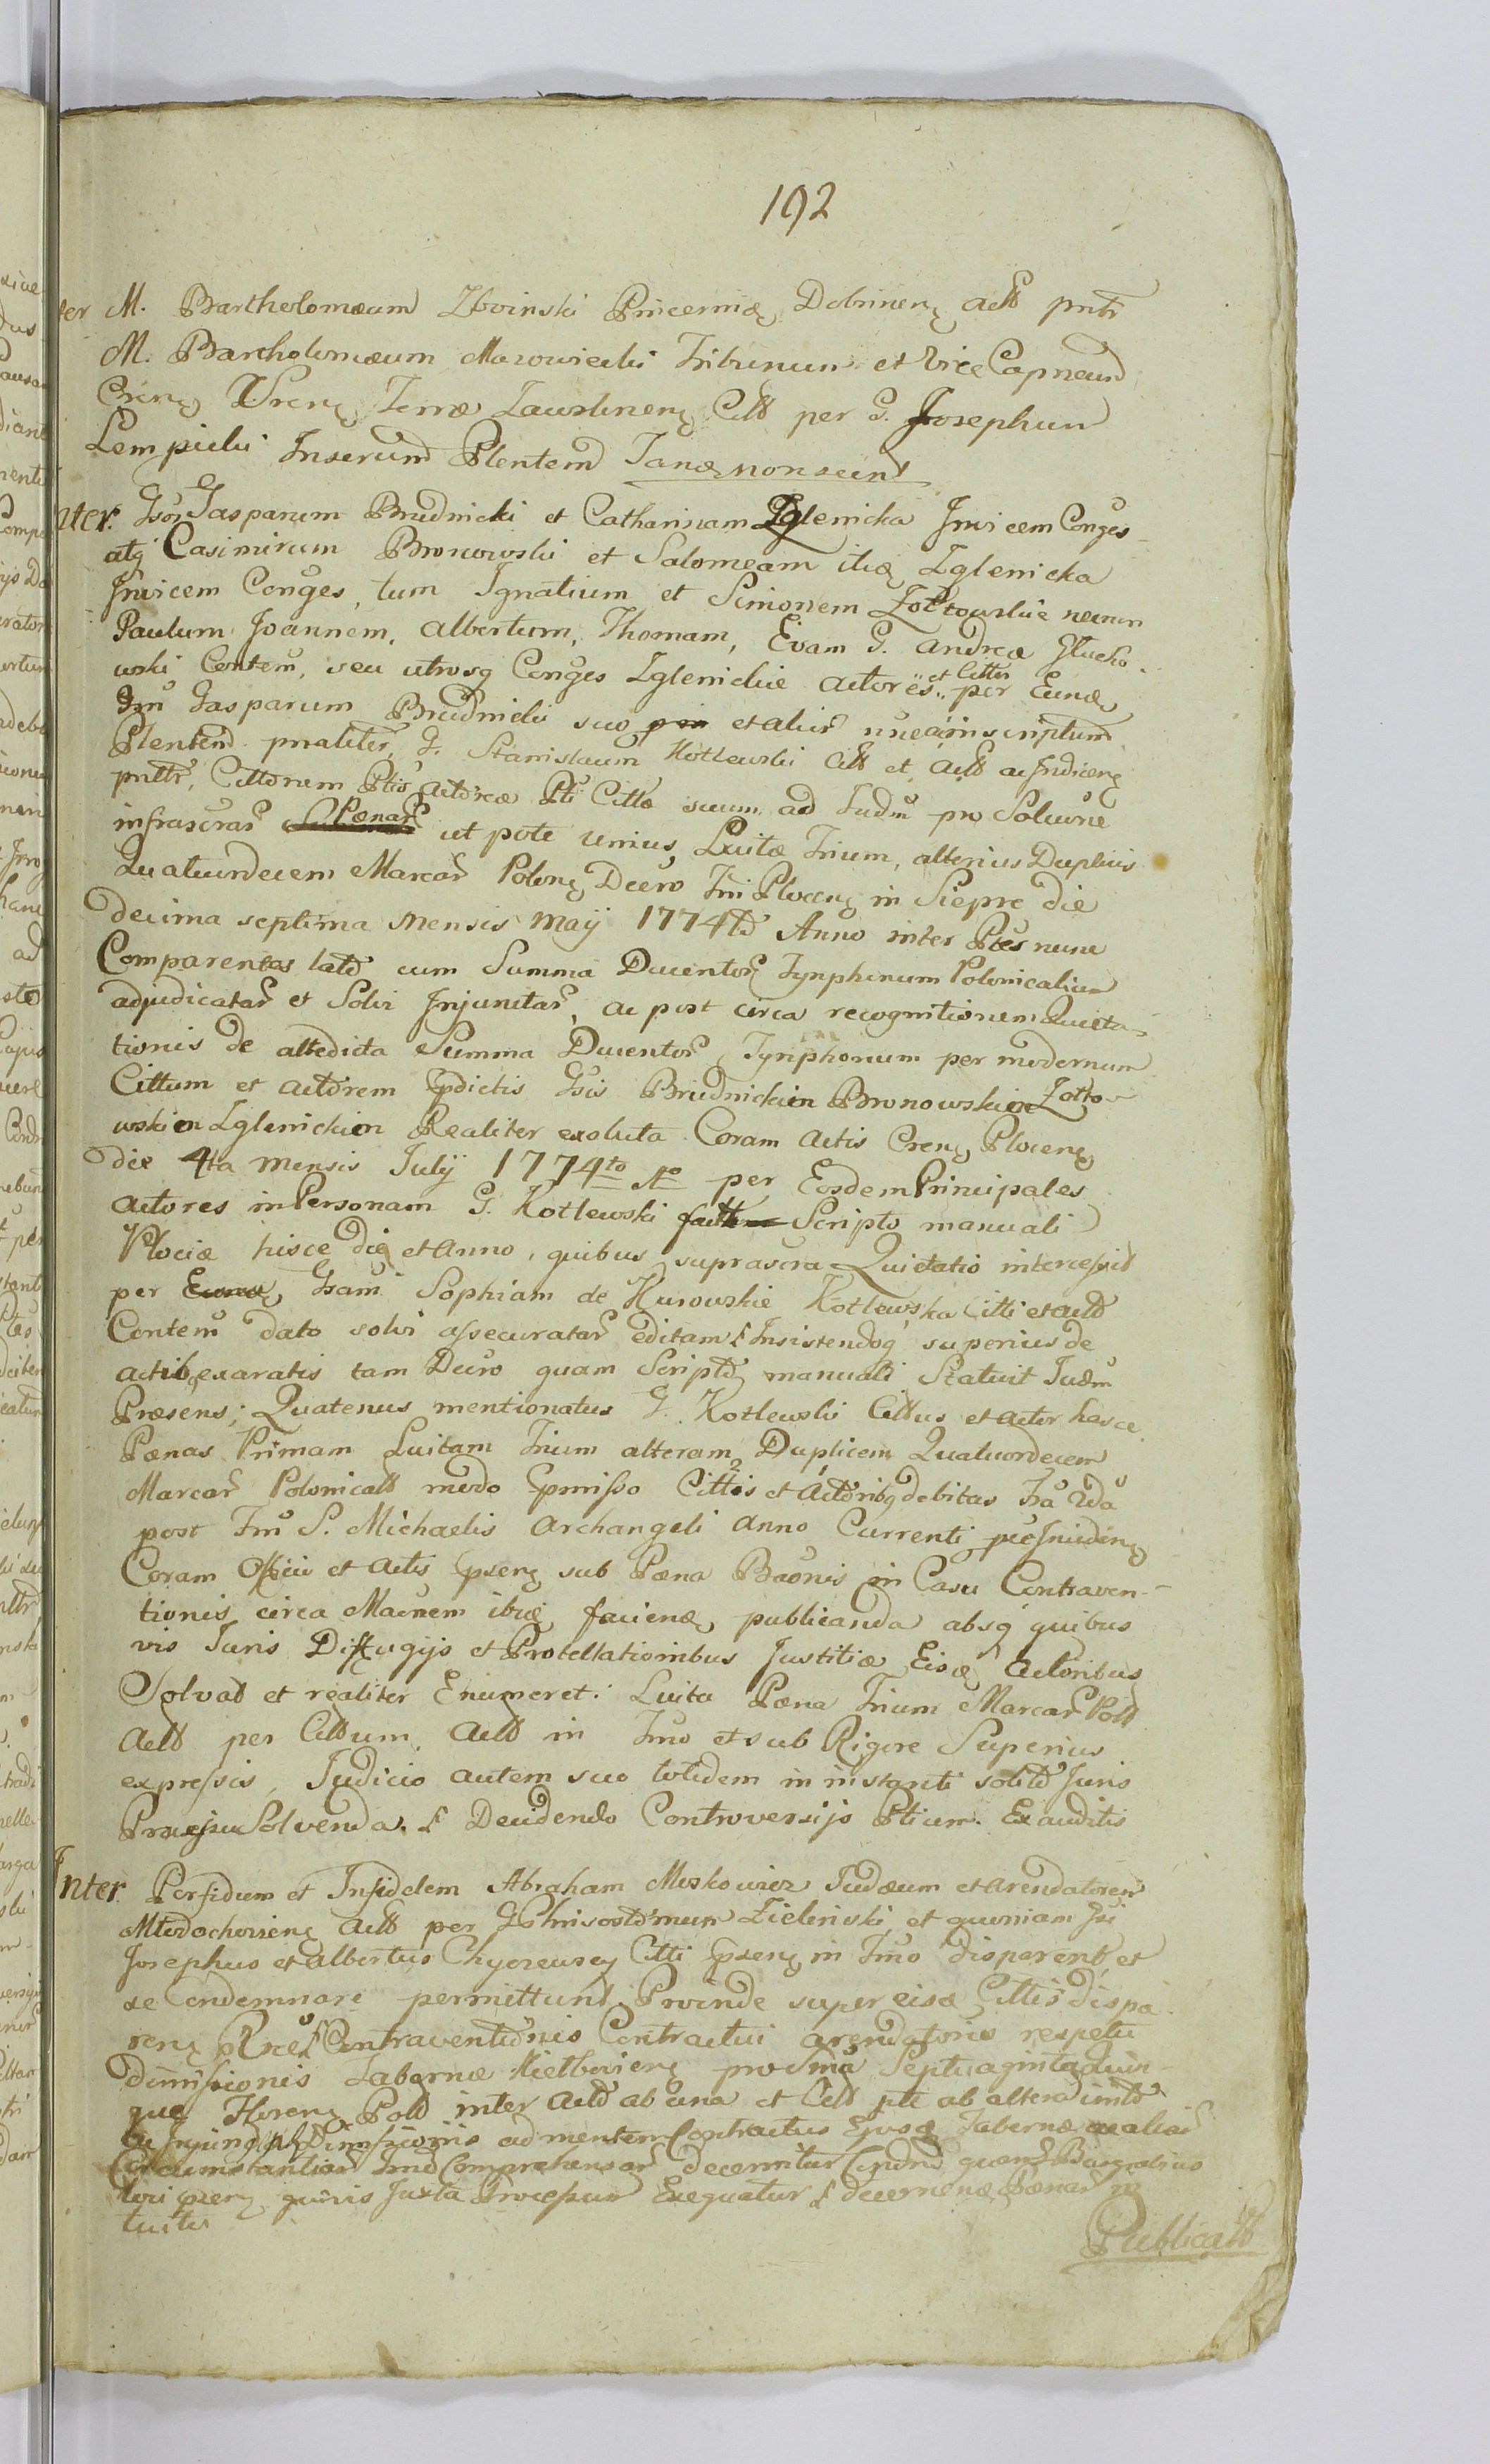 192
ter M. Bartholomæum Zboinski Pincernię Dobrinenę Actt pntr
M. Bartholomæum Mazowiecki Tribunum et Vice Capneum
Crenę Terræ Zawskrinenę Citt per G. Josephum
Lempicki Inserum Plentem Tanę non scient
nter. Gsos Gasparum Brudnicki et Catharinam Zglenicka Invicem Conges
atq Casimirum Bronowski et Salomeam itię Zglenicka
Invicem Conges, tum Ignatium et Simonem Zottowskie necnon
Paulum Joannem, Albertum, Thomam, Evam G. Andreæ Głucho
wski Contem, seu utrosq Conges Zglenickie Actores et Cittos per Eunę
Gsm Gasparum Brudnicki suo et alior noe inscriptum
Plentem pnaliter, G. Stanislaum Kotlewski Citt et Actt ac Indicenę
pnttr, Cittonem Ptis Actoreæ Pti Cittæ secum ad Judm pro Solune
infrascrar Pænar ut pote unius, Luitæ Trium, alterius Duplicis
Quatuordecem Marcar Polonę Decro Tri Plocenę in Sieprc die
decima septima Mensis Maij 1774to Anno inter Ptes nunc
Comparentes lato cum Summa Ducentor Tynphonum Polonicalium
adjudicatar et Solvi Injunctar, ac post circa recognitionem Quieta
tionis de altedicta Summa Ducentor Tynphonum per modernum
Cittum et Actorem Gdictis Gsis Brudnickien Bronowskien Zotto
wskien Zglenickien Realiter exoluta Coram Actis Crenę Plocenę
die 4ta Mensis Julij 1774to Ao per Eosdem Principales
Actores in Personam G. Kotlewski Scripto manuali
Plociæ hisce die et Anno, quibus suprascra Quietatio intercessit
per Gsam Sophiam de Kurowskie Kotlewska Citti et Actt
Contem dato solvi assecuratar editam. Insistendoq superius de
actibę exaratis tam Decro quam Scripto manuali Statuit Judm
Præsens; Quatenus mentionatus G. Kotlewski Cittus et Actor hasce
Pænas Primam Luitam Trium alteram Duplicem Quatuordecem
Marcar Polonicalt modo Gpmisso Cittis et Actoribę debitas
post Tm S. Michaelis Archangeli Anno Currenti
Coram Officio et Actis Gpsenę sub Pæna Bannis in Casu Contraven
tionis circa itię facienę publicanda absq quibus
vis Juris Diffugijs et Protestationibus Justitiæ Eisę Actoribus
Solvat et realiter Enumeret. Luita Pæna Trium Marcar Poltt
Actt per Cittum Actt in Tmo et sub Rigore Superius
expressis, Judicio autem suo totidem in instanti solito Juris
Processu Solvenda. Decidendo Controversijs Ptium. Ex auditis
Inter Perfidum et Infidelem Abraham Moskowicz Judæum et Arendatorem
Actt per G Chrisostomum Zielinski et quoniam Gsi
Josephus et Albertus Citti Gpsenę in Tmo disparent et
se condemnari permittunt Proinde super eisę Cittis dispa
renę Contraventionis Contractui arendatorio respectu
dimissionis Tabernæ Kietbovienę pro Sma Septuaginta Quin
que Florenę Poltt inter Actt ab una et Citt pte ab altera
Dimissionis ad mentem Contractus Ejusę Tabernæ ac aliar
Circumstantiar Comprehensar decernitur
loci quivis Juxta Processum Exequatur decernenę Pænar in
tuitu
Publicatt